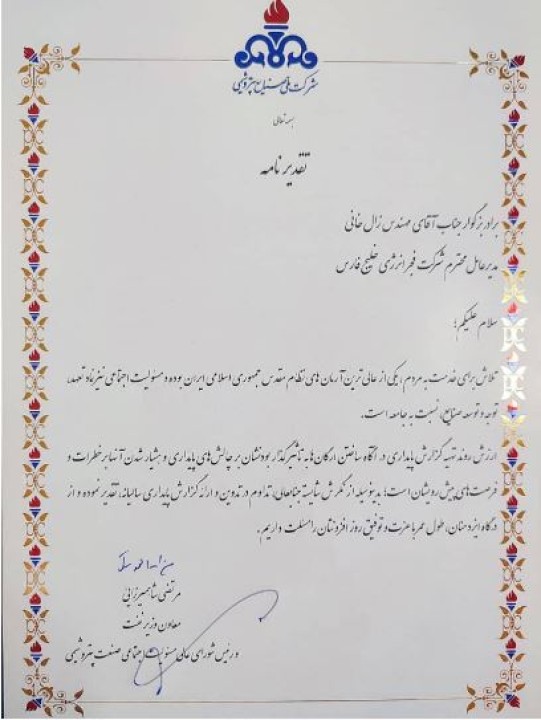 شرکت ملی صنایع پتروشیمی
بسمه تعالی
تقدیر نامه
برادر بزرگوار جناب آقای مهندس زال خانی
مدیرعامل محترم شرکت فجر انرژی خلیج فارس
سلام علیکم؛
تلاش برای خدمت به مردم، یکی از عالی ترین آرمان های نظام مقدس جمهوری اسلامی ایران بوده و مسئولیت اجتماعی نیز نماد تعهد،
توجه و توسعه صنایع، نسبت به جامعه است.
ارزش روند تهیه گزارش پایداری در آگاه ساختن ارگان ها به تأثیرگذار بودنشان بر چالش های پایداری و هشیار شدن آنها بر خطرات و
فرصت های پیش رویشان است؛ بدینوسیله از نگرش شایسته جنابعالی، تداوم در تدوین و ارائه گزارش پایداری سالیانه، تقدیر نموده و از
درگاه ایزد منان، طول عمر با عزت و توفیق روز افزونتان را مسئلت داریم.
مرتضی شاهمیرزایی
معاون وزیر نفت
و رئیس شورای عالی مسئولیت اجتماعی صنعت پتروشیمی